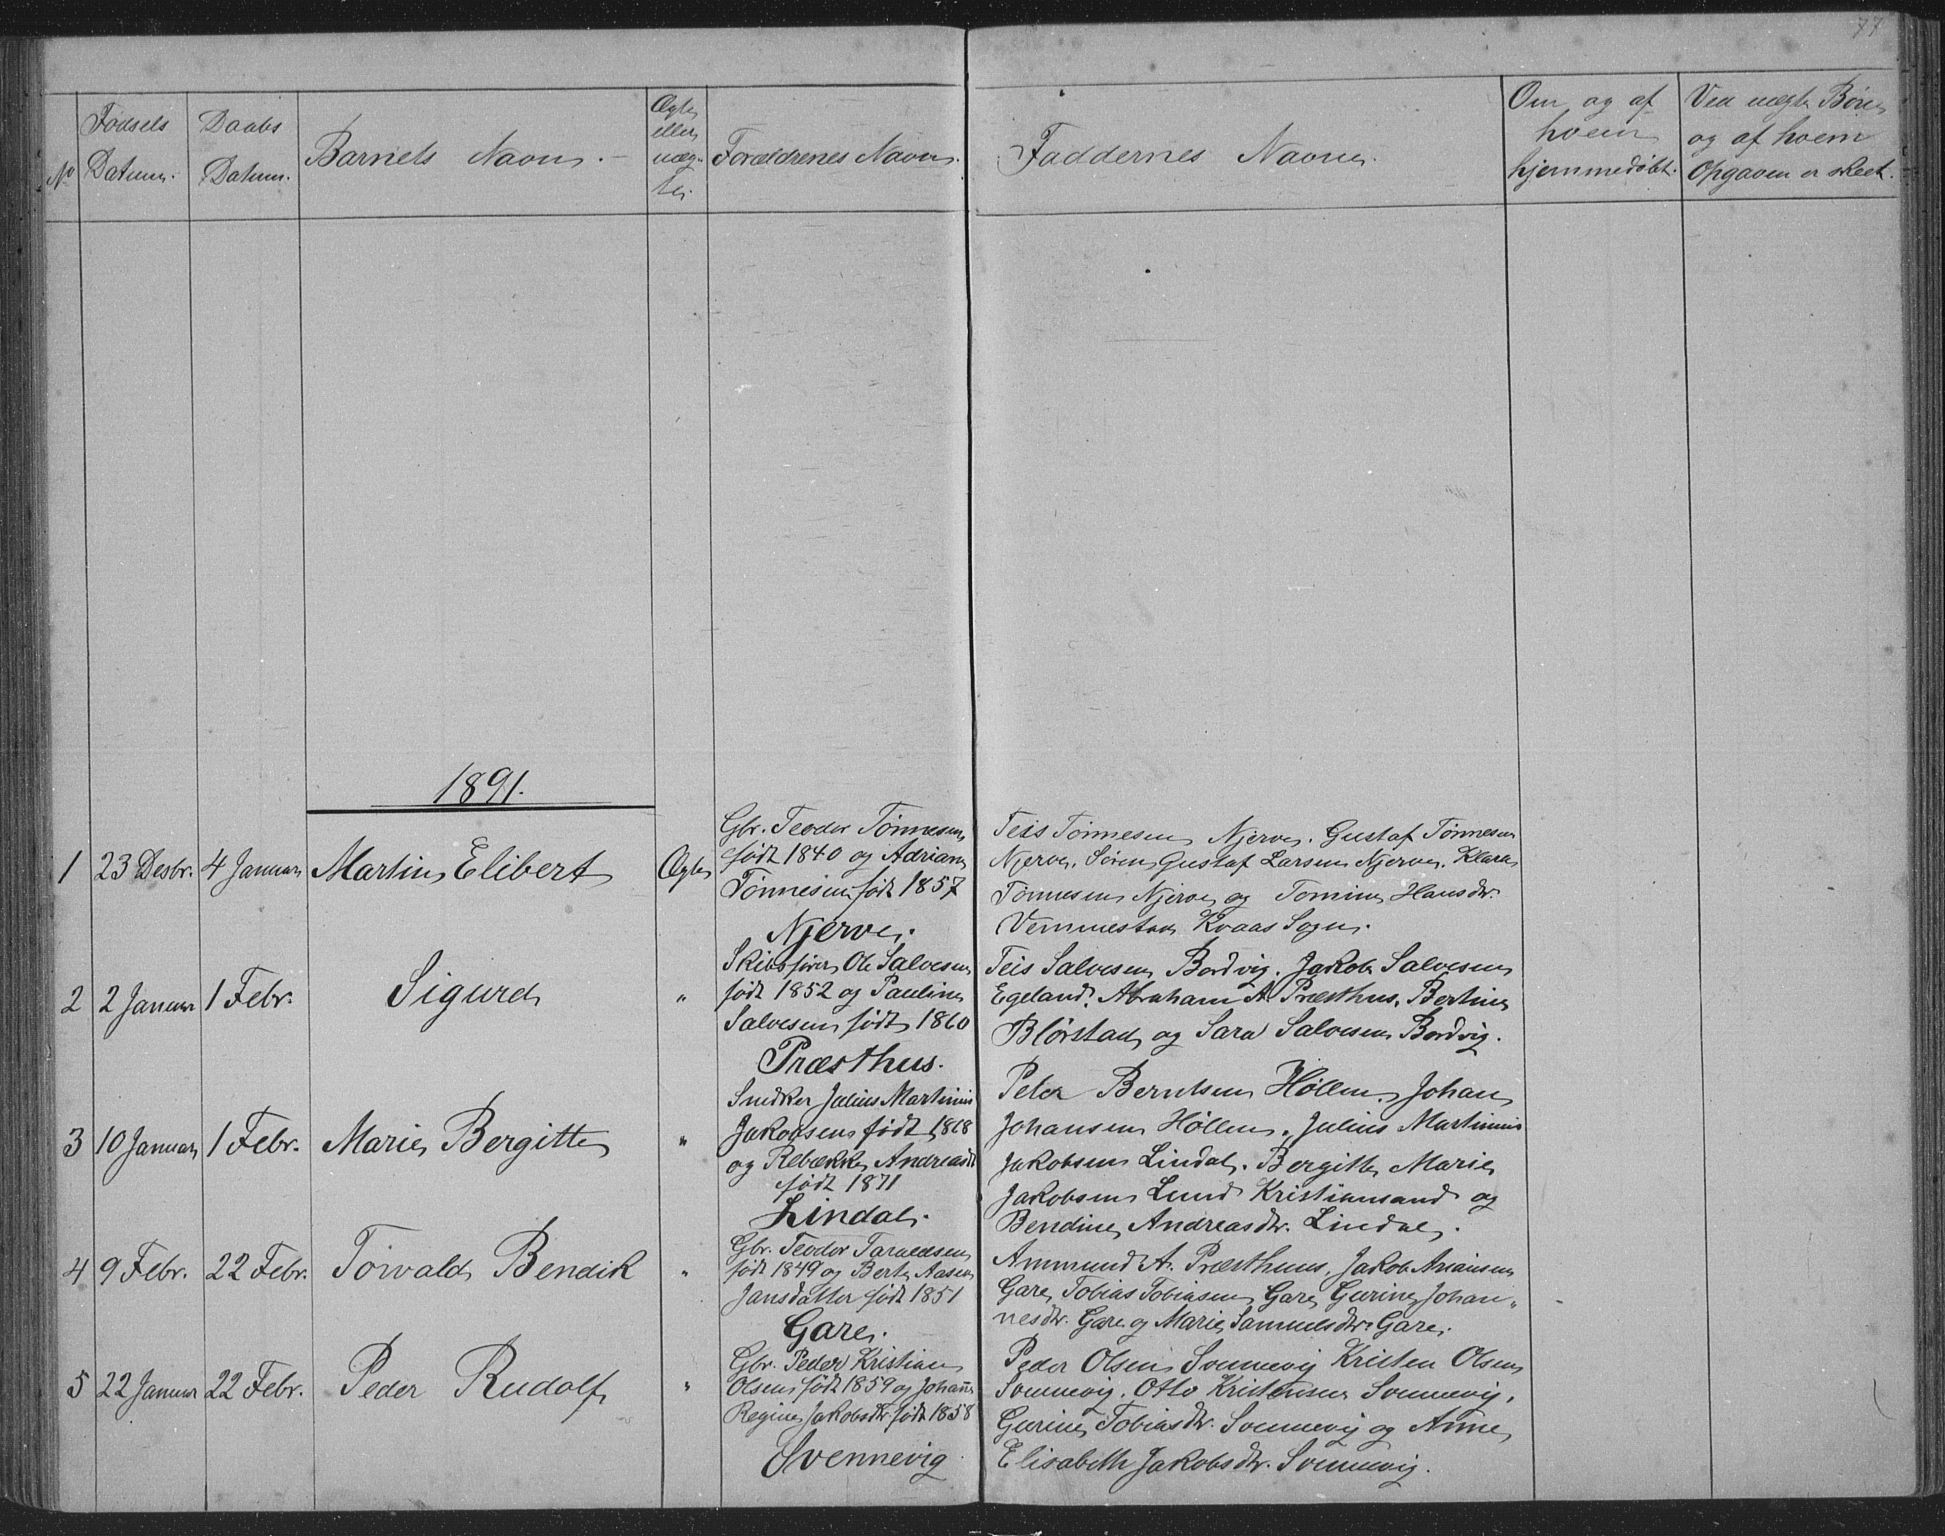 77
No
Fødsels
Datum.
Daabs
Datum.
Barnets Navn.
Ægte
eller
uæg-
te.
Forældrenes Navn.
Faddernes Navne.
Om og af
hvem
hjemmedøbt.
Ved uægte Børn
og af hvem
Opgaven er skeet.
1891.
1 23 Desbr. 4 Januar Martin Elibert Ægte
Gbr. Teodor Tønnesen
født 1840 og Adriane
Tønnesen født 1857
Njerve.
Teis Tønnesen Njerve. Gustaf Tønnesen
Njerve. Søren Gustaf Larsen Njerve. Klara
Tønnesen Njerve og Tomine Hansdtr.
Vemmestad Kvaas Sogn.
2 2 Januar 1 Febr. Sigurd "
Skibsfører Ole Salvesen
født 1852 og Pauline
Salvesen født 1860
Præsthus.
Teis Salvesen Bordvig. Jakob Salvesen
Egeland. Abraham A. Præsthus. Bertine
Blørstad og Sara Salvesen Bordvig.
3 10 Januar 1 Febr. Marie Bergitte "
Snedker Julius Martinius
Jakobsen født 1868
og Rebekke Andreasdt
født 1871
Lindal.
Peter Berntsen Høllen. Johan
Johansen Høllen. Julius Martinius
Jakobsen Lindal. Bergitte Marie
Jakobsen Lund Kristiansand og
Bendine Andreasdtr. Lindal.
4 9 Febr. 22 Febr. Torvald Bendik "
Gbr. Teodor Taraldsen
født 1849 og Berte Aasen
Jansdatter født 1851
Gare.
Ammund A. Præsthus, Jakob Anansen
Gare, Tobias Tobiasen Gare, Gurine Johan-
nesdtr. Gare og Marie Samuelsdtr. Gare.
5 22 Januar 22 Febr. Peder Rudolf "
Gbr. Peder Kristian
Olsen født 1859 og Johanne
Regine Jakobsdtr født 1858
Svennevig
Peder Olsen Svennevig Kristen Olsen
Svennevig. Otto Kristensen Svennevig.
Gurine Tobiasdtr. Svennevig og Anne
Elisabeth Jakobsdtr. Svennevig.